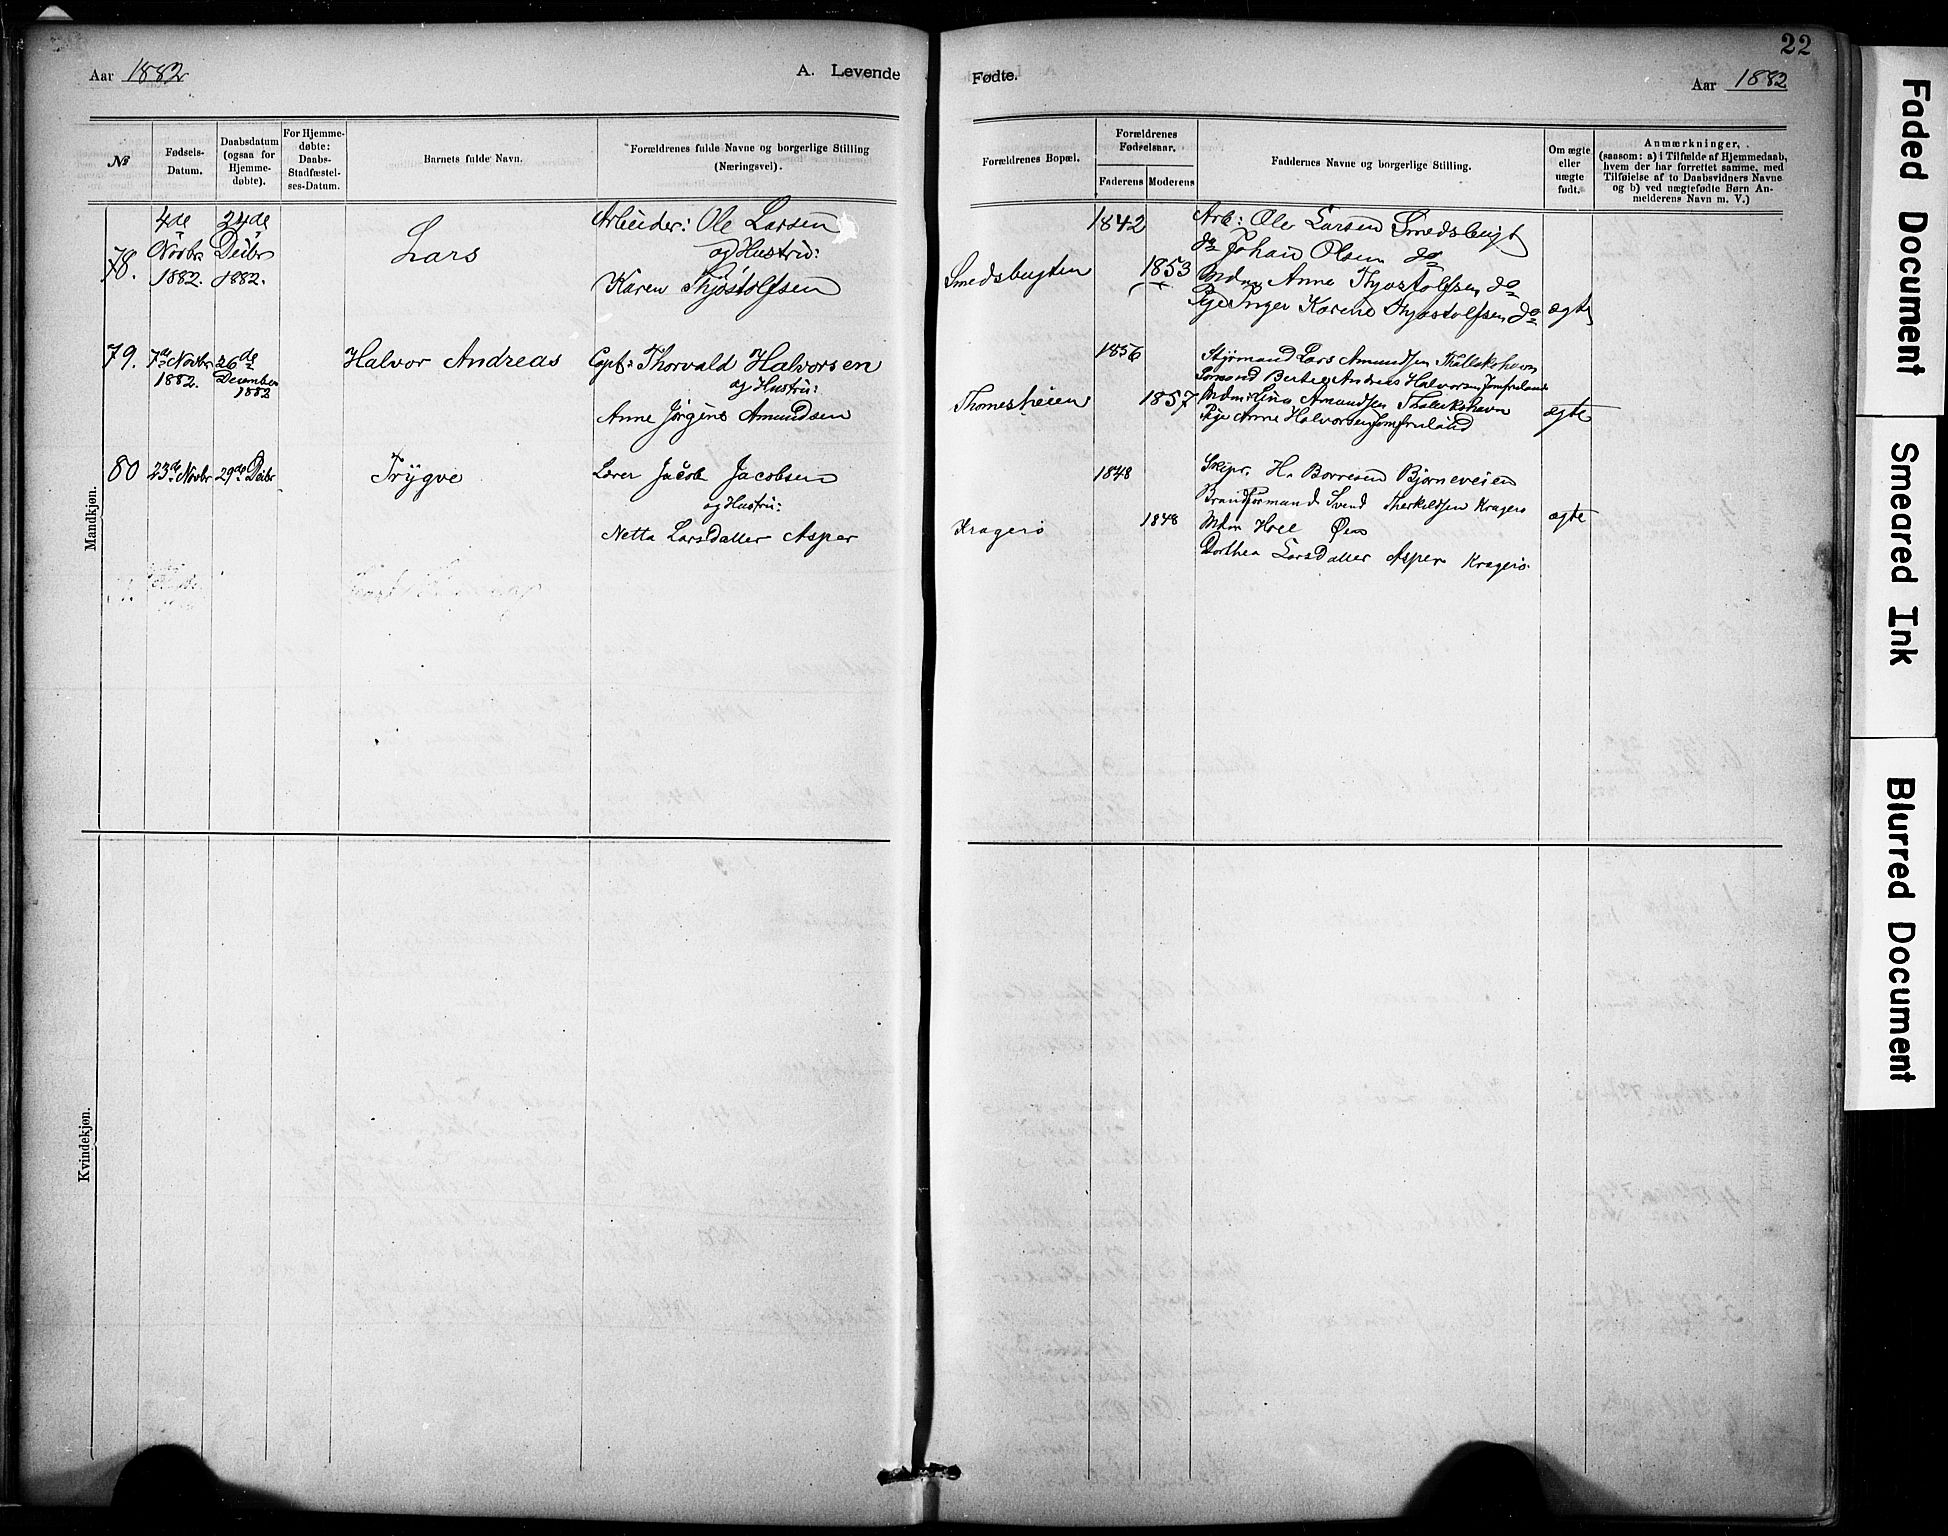 22
Aar 1882 A. Levende Fødte. Aar 1882
№
Fødsels-Datum.
Daabsdatum (ogsaa for Hjemme-døbte).
For Hjemme-døbte: Daabs-Stadfæstel-ses-Datum.
Barnets fulde Navn.
Forældrenes fulde Navne og borgerlige Stilling (Næringsvei).
Forældrenes Bopæl.
Forældrenes Fødselsaar.
Faderens Moderens
Faddernes Navne og borgerlige Stilling.
Om ægte eller uægte født.
Anmærkninger,
(saasom: a) i Tilfælde af Hjemmedaab, hvem der har forrettet samme, med Tilføielse af to Daabsvidners Navne og b) ved uægtefødte Børn An-melderens Navn m. V.)
Mandkjøn.
78. 4de Novbr 1882. 24de Decbr 1882.
Lars
Arbeider: Ole Larsen
og Hustru:
Karen Thjostolfsen
Smedsbugten
1842
1853
Arb: Ole Larsen Smedsbugt
do Johan Olsen do
Mdm Anne Thjostolfsen do
Pige Inger Karene Thjostolfsen do
ægte
79. 7de Novbr 1882. 26de December 1882
Halvor Andreas
Capt: Thorvald Halvorsen
og Hustru:
Anne Jørgine Amundsen
Thomesheien
1856
1857
Styrmand Lars Amundsen Thallakshavn
Sømand Berthe Andreas Halvorsen Jomfruland
Mdm Lina Amundsen Thalakshavn
Pige Anne Halvorsen Jomfruland
ægte
80 23de Novbr 29de Decbr
Trygve
Lærer Jacob Jacobsen
og Hustru:
Netta Larsdatter Asper
Kragerø
1848
1848
Skipr. H. Borresen Bjørneveien
Brandformand Svend Therkildsen Kragerø
Mdm Hoel Øen
Dorthea Larsdatter Asper Kragerø
ægte
Kvindekjøn.
Faded Document
Smeared Ink
Blurred Document